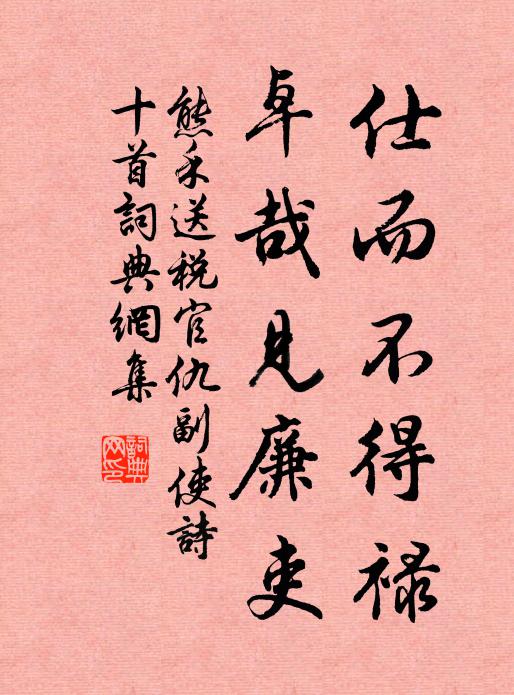 仕而不得禄
卓哉見廉吏
熊禾送税官仇副使詩
十首詞典網集
詞典网印